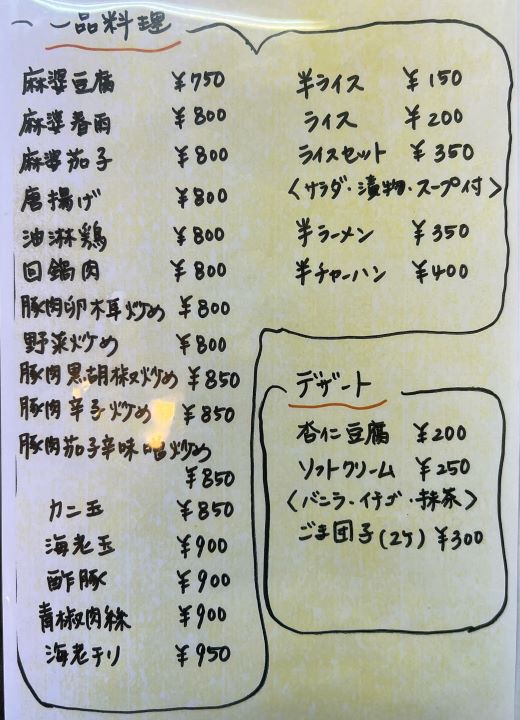 一品料理
麻婆豆腐 ¥750
麻婆春雨 ¥800
麻婆茄子 ¥800
唐揚げ ¥800
油淋鶏 ¥800
回鍋肉 ¥800
豚肉卵木耳炒め ¥800
野菜炒め ¥800
豚肉黒胡椒炒め ¥850
豚肉辛子炒め ¥850
豚肉茄子辛味噌炒め
¥850
カニ玉 ¥850
海老玉 ¥900
酢豚 ¥900
青椒肉絲 ¥900
海老チリ ¥950
半ライス ¥150
ライス ¥200
ライスセット ¥350
〈サラダ・漬物・スープ付〉
半ラーメン ¥350
半チャーハン ¥400
デザート
杏仁豆腐 ¥200
ソフトクリーム ¥250
〈バニラ・イチゴ・抹茶〉
ごま団子(2ケ) ¥300